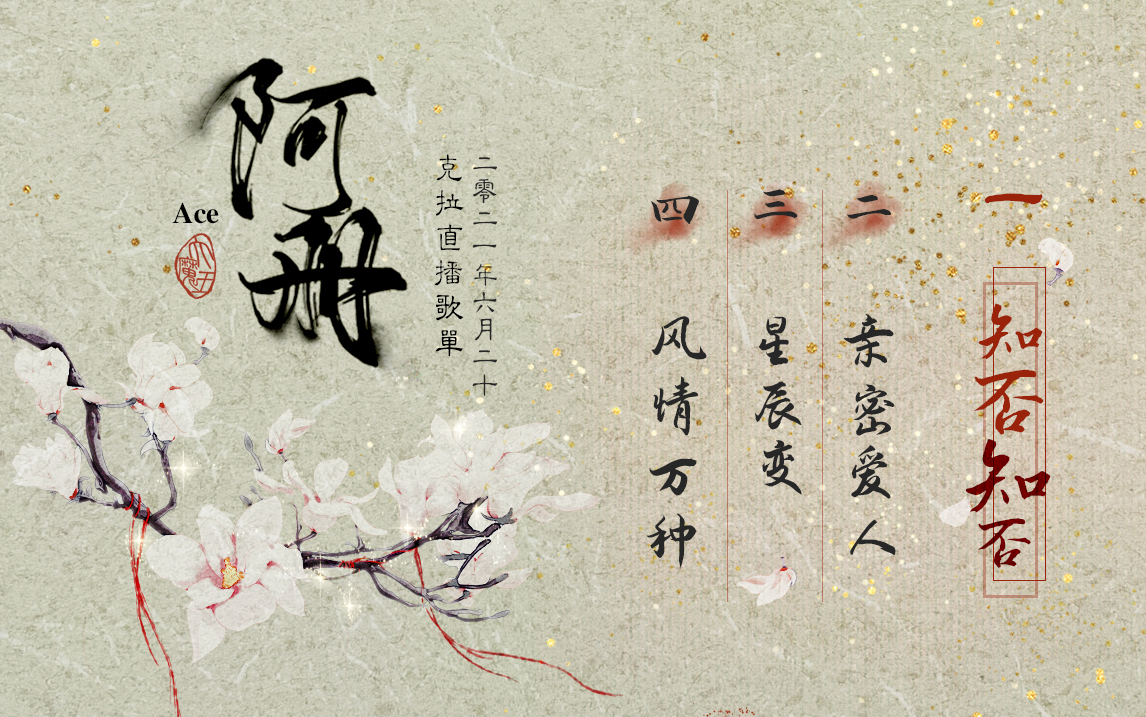 阿冉
Ace
二零二一年六月二十
克拉直播歌單
一
知否知否
二
亲密爱人
三
星辰变
四
风情万种